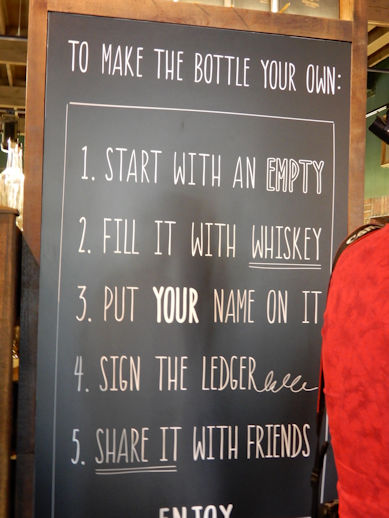 TO MAKE THE BOTTLE YOUR OWN:
1. START WITH AN EMPTY
2. FILL IT WITH WHISKEY
3. PUT YOUR NAME ON IT
4. SIGN THE LEDGER
5. SHARE IT WITH FRIENDS
ENJOY